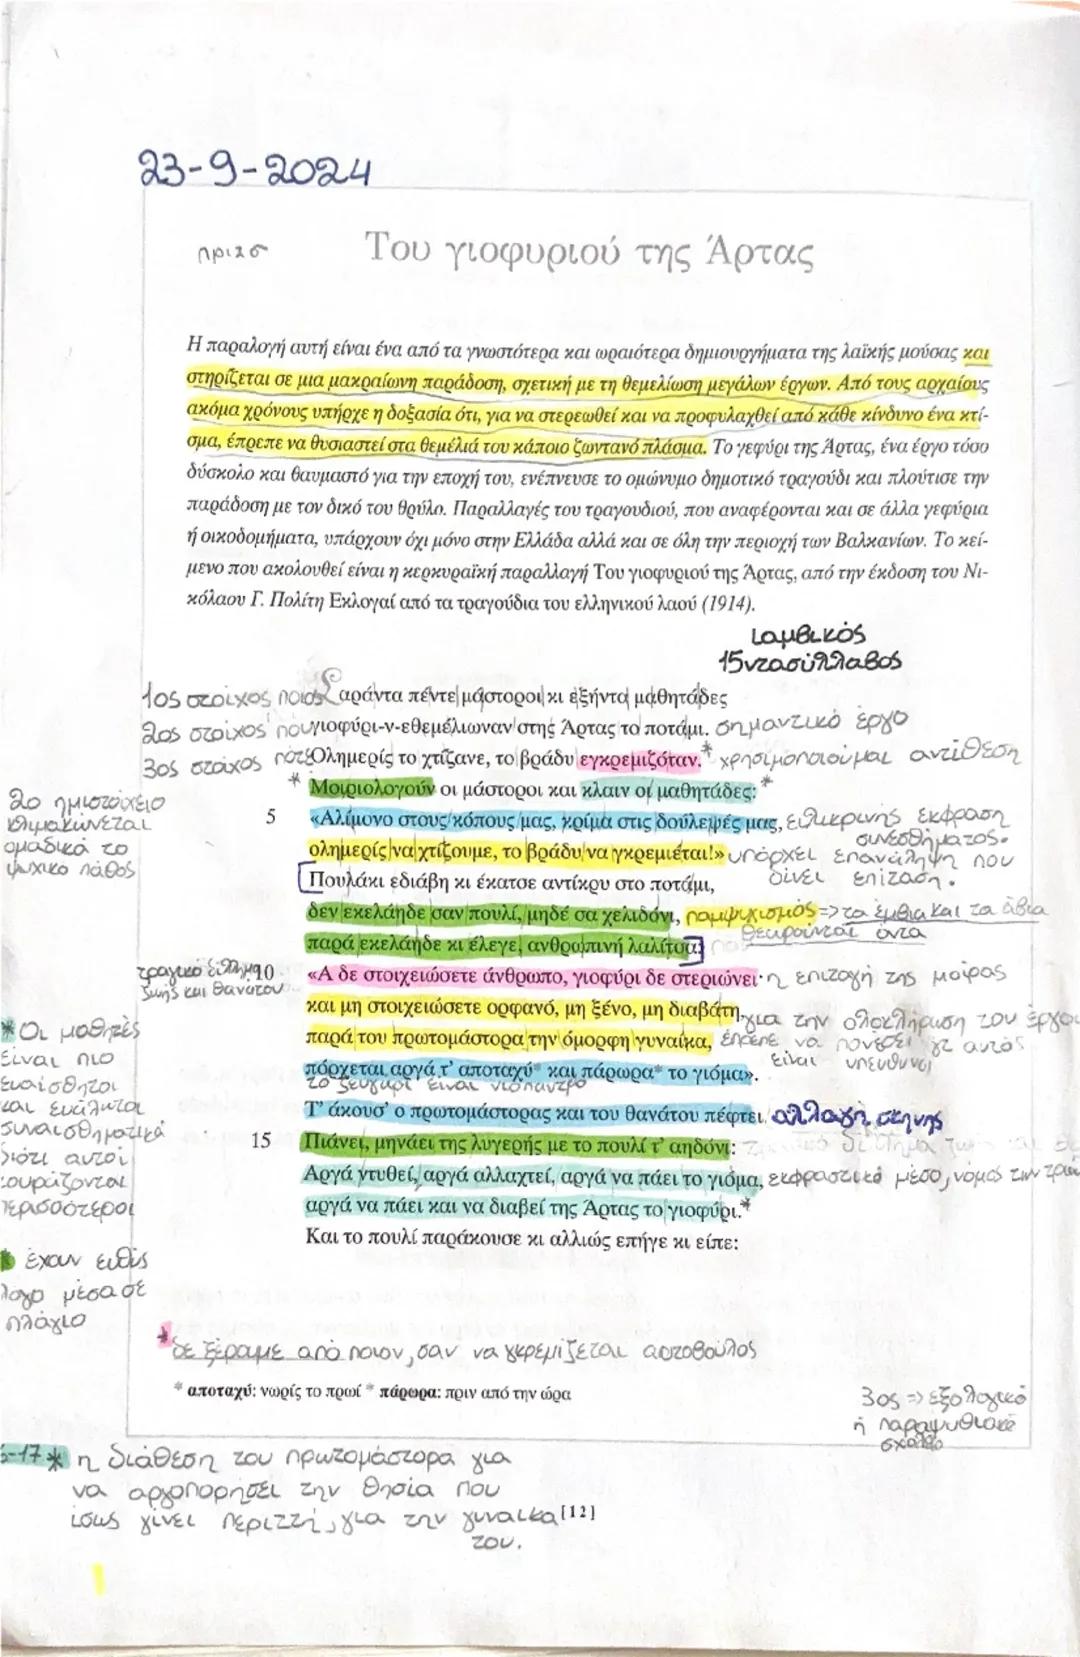 23-9-2024
Του γιοφυριού της Άρτας
Η παραλογή αυτή είναι ένα από τα γνωστότερα και ωραιότερα δημιουργήματα της λαϊκής μούσας και
στηρίζεται σε μια μακραίωνη παράδοση, σχετική με τη θεμελίωση μεγάλων έργων. Από τους αρχαίους
ακόμα χρόνους υπήρχε η δοξασία ότι, για να στερεωθεί και να προφυλαχθεί από κάθε κίνδυνο ένα κτί-
σμα, έπρεπε να θυσιαστεί στα θεμέλιά του κάποιο ζωντανό πλάσμα. Το γεφύρι της Άρτας, ένα έργο τόσο
δύσκολο και θαυμαστό για την εποχή του, ενέπνευσε το ομώνυμο δημοτικό τραγούδι και πλούτισε την
παράδοση με τον δικό του θρύλο. Παραλλαγές του τραγουδιού, που αναφέρονται και σε άλλα γεφύρια
ή οικοδομήματα, υπάρχουν όχι μόνο στην Ελλάδα αλλά και σε όλη την περιοχή των Βαλκανίων. Το κεί-
μενο που ακολουθεί είναι η κερκυραϊκή παραλλαγή Του γιοφυριού της Άρτας, από την έκδοση του Νι-
κόλαου Γ. Πολίτη Εκλογαί από τα τραγούδια του ελληνικού λαού (1914).
ιαμβικός
15ντασύλλαβος
1ος στοίχος ποιος Σαράντα πέντε μάστοροι κι εξήντα μαθητάδες
2ος στοίχος που γιοφύρι-ν-εθεμέλιωναν στης Άρτας το ποτάμι. σημαντικό έργο
3ος στοίχος πότε Ολημερίς το χτίζανε, το βράδυ εγκρεμιζόταν.* χρησιμοποιούμαι αντίθεση
* Μοιριολογούν οι μάστοροι και κλαιν οι μαθητάδες:*
2ο ημιστοίχειο
κλιμακώνεται
ομαδικά το
ψυχικό πάθος
5 «Αλίμονο στους κόπους μας, κρίμα στις δούλεψές μας, ειλικρινής έκφραση
συνεσθήματος.
ολημερίς να χτίζουμε, το βράδυ να γκρεμιέται!» υπάρχει επανάληψη που
δίνει επίταση.
Πουλάκι εδιάβη κι έκατσε αντίκρυ στο ποτάμι,
δεν εκελάηδε σαν πουλί, μηδέ σα χελιδόνι, παμψυχισμός => τα έμβια και τα άβια
θεωρούνται όντα
παρά εκελάηδε κι έλεγε, ανθρωπινή λαλίτσα:
τραγικό δίλημμα
ζωής και θανάτου
10 «Α δε στοιχειώσετε άνθρωπο, γιοφύρι δε στεριώνει· η επιταγή της μοίρας
και μη στοιχειώσετε ορφανό, μη ξένο, μη διαβάτη, για την ολοκλήρωση του έργου
παρά του πρωτομάστορα την όμορφη γυναίκα, έπρεπε να πονέσει γτ αυτός
είναι υπεύθυνοι
πόρχεται αργά τ' αποταχύ* και πάρωρα* το γιόμα».
το ζευγάρι είναι νιόπαντρο
Τ' άκουσ' ο πρωτομάστορας και του θανάτου πέφτει. αλλαγή σκηνής
15 Πιάνει, μηνάει της λυγερής με το πουλί τ' αηδόνι:
Αργά ντυθεί, αργά αλλαχτεί, αργά να πάει το γιόμα, εκφραστικό μέσο, νόμος των
αργά να πάει και να διαβεί της Άρτας το γιοφύρι.*
Και το πουλί παράκουσε κι αλλιώς επήγε κι είπε:
* Οι μαθητές
είναι πιο
ευαίσθητοι
και ευάλωτοι
συναισθηματικά
διότι αυτοί
κουράζονται
περισσότεροι
έχουν ευθύς
λόγο μέσα σε
πλάγιο
* δε ξέραμε από ποιον, σαν να γκρεμίζεται αυτοβούλος
* αποταχύ: νωρίς το πρωί * πάρωρα: πριν από την ώρα
3ος => εξολογικό
ή παραμυθιακό
σχόλιο
-17* η διάθεση του πρωτομάστορα για
να αργοπορήσει την θησία που
ίσως γίνει περιττή, για την γυναίκα
του.
[12]